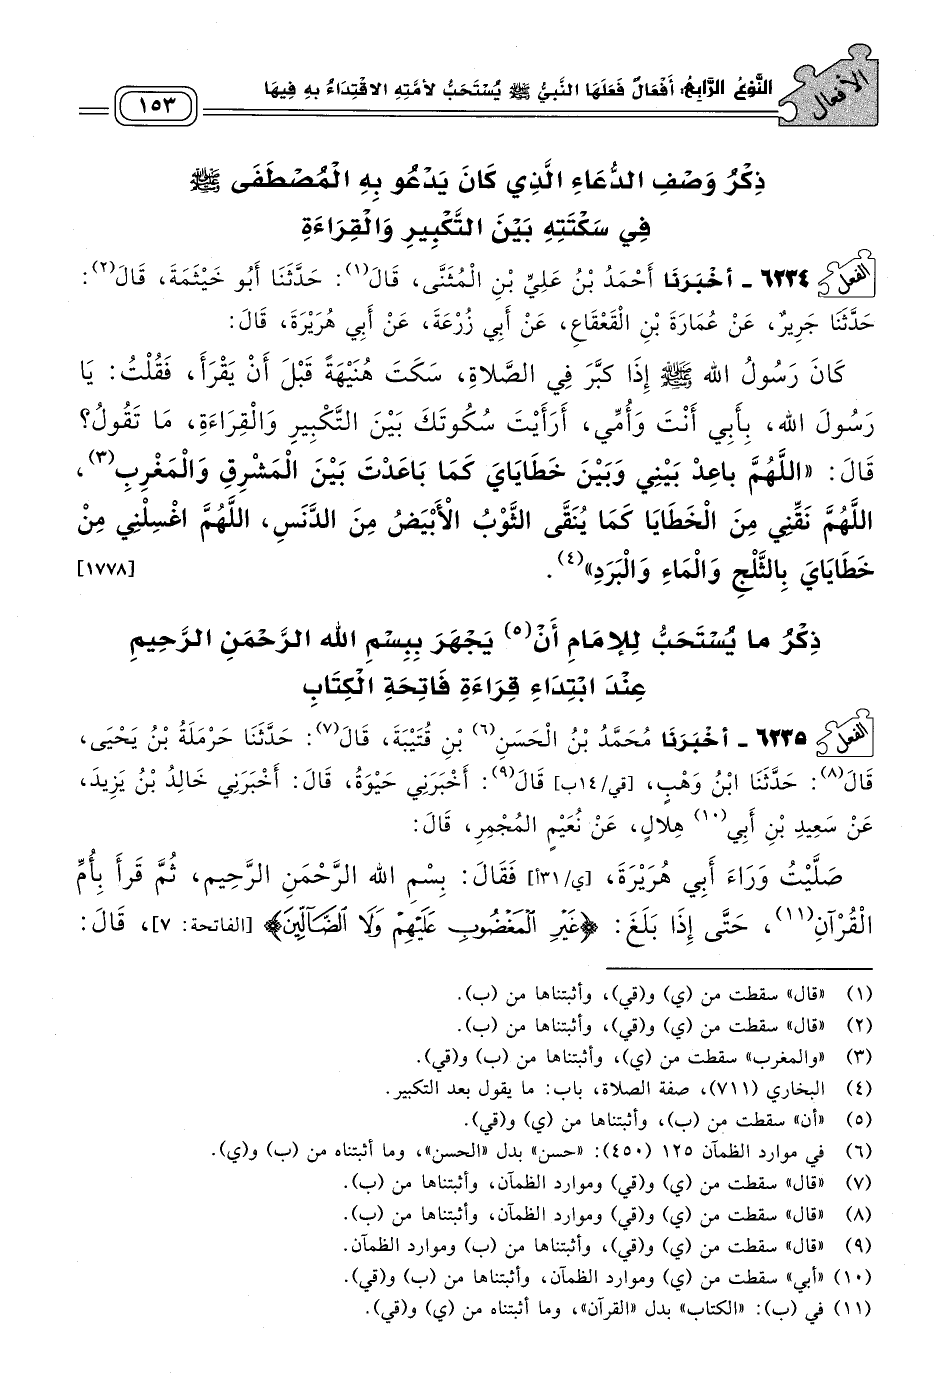 الأفعال
النَّوْعُ الرَّابِعُ: أَفْعَالٌ فَعَلَهَا النَّبِيُّ ﷺ يُسْتَحَبُّ لأُمَّتِهِ الاقْتِدَاءُ بِهِ فِيهَا
١٥٣
ذِكْرُ وَصْفِ الدُّعَاءِ الَّذِي كَانَ يَدْعُو بِهِ الْمُصْطَفَى ﷺ
فِي سَكْتَتِهِ بَيْنَ التَّكْبِيرِ وَالْقِرَاءَةِ
الفعل ٦٢٣٤ - أَخْبَرَنَا أَحْمَدُ بْنُ عَلِيِّ بْنِ الْمُثَنَّى، قَالَ(١): حَدَّثَنَا أَبُو خَيْثَمَةَ، قَالَ(٢):
حَدَّثَنَا جَرِيرٌ، عَنْ عُمَارَةَ بْنِ الْقَعْقَاعِ، عَنْ أَبِي زُرْعَةَ، عَنْ أَبِي هُرَيْرَةَ، قَالَ:
كَانَ رَسُولُ الله ﷺ إِذَا كَبَّرَ فِي الصَّلاةِ، سَكَتَ هُنَيْهَةً قَبْلَ أَنْ يَقْرَأَ، فَقُلْتُ: يَا
رَسُولَ الله، بِأَبِي أَنْتَ وَأُمِّي، أَرَأَيْتَ سُكُوتَكَ بَيْنَ التَّكْبِيرِ وَالْقِرَاءَةِ، مَا تَقُولُ؟
قَالَ: «اللَّهُمَّ بَاعِدْ بَيْنِي وَبَيْنَ خَطَايَايَ كَمَا بَاعَدْتَ بَيْنَ الْمَشْرِقِ وَالْمَغْرِبِ(٣)،
اللَّهُمَّ نَقِّنِي مِنَ الْخَطَايَا كَمَا يُنَقَّى الثَّوْبُ الأَبْيَضُ مِنَ الدَّنَسِ، اللَّهُمَّ اغْسِلْنِي مِنْ
خَطَايَايَ بِالثَّلْجِ وَالْمَاءِ وَالْبَرَدِ»(٤). [١٧٧٨]
ذِكْرُ مَا يُسْتَحَبُّ لِلإِمَامِ أَنْ(٥) يَجْهَرَ بِبِسْمِ الله الرَّحْمَنِ الرَّحِيمِ
عِنْدَ ابْتِدَاءِ قِرَاءَةِ فَاتِحَةِ الْكِتَابِ
الفعل ٦٢٣٥ - أَخْبَرَنَا مُحَمَّدُ بْنُ الْحَسَنِ(٦) بْنِ قُتَيْبَةَ، قَالَ(٧): حَدَّثَنَا حَرْمَلَةُ بْنُ يَحْيَى،
قَالَ(٨): حَدَّثَنَا ابْنُ وَهْبٍ، [قي/١٤ب] قَالَ(٩): أَخْبَرَنِي حَيْوَةُ، قَالَ: أَخْبَرَنِي خَالِدُ بْنُ يَزِيدَ،
عَنْ سَعِيدِ بْنِ أَبِي(١٠) هِلَالٍ، عَنْ نُعَيْمٍ الْمُجْمِرِ، قَالَ:
صَلَّيْتُ وَرَاءَ أَبِي هُرَيْرَةَ، [ي/٣١أ] فَقَالَ: بِسْمِ الله الرَّحْمَنِ الرَّحِيمِ، ثُمَّ قَرَأَ بِأُمِّ
الْقُرْآنِ(١١)، حَتَّى إِذَا بَلَغَ: ﴿غَيْرِ الْمَغْضُوبِ عَلَيْهِمْ وَلَا الضَّالِّينَ﴾ [الفاتحة: ٧]، قَالَ:
(١) «قال» سقطت من (ي) و(قي)، وأثبتناها من (ب).
(٢) «قال» سقطت من (ي) و(قي)، وأثبتناها من (ب).
(٣) «والمغرب» سقطت من (ي)، وأثبتناها من (ب) و(قي).
(٤) البخاري (٧١١)، صفة الصلاة، باب: ما يقول بعد التكبير.
(٥) «أن» سقطت من (ب)، وأثبتناها من (ي) و(قي).
(٦) في موارد الظمآن ١٢٥ (٤٥٠): «حسن» بدل «الحسن»، وما أثبتناه من (ب) و(ي).
(٧) «قال» سقطت من (ي) و(قي) وموارد الظمآن، وأثبتناها من (ب).
(٨) «قال» سقطت من (ي) و(قي) وموارد الظمآن، وأثبتناها من (ب).
(٩) «قال» سقطت من (ي) و(قي)، وأثبتناها من (ب) وموارد الظمآن.
(١٠) «أبي» سقطت من (ي) وموارد الظمآن، وأثبتناها من (ب) و(قي).
(١١) في (ب): «الكتاب» بدل «القرآن»، وما أثبتناه من (ي) و(قي).